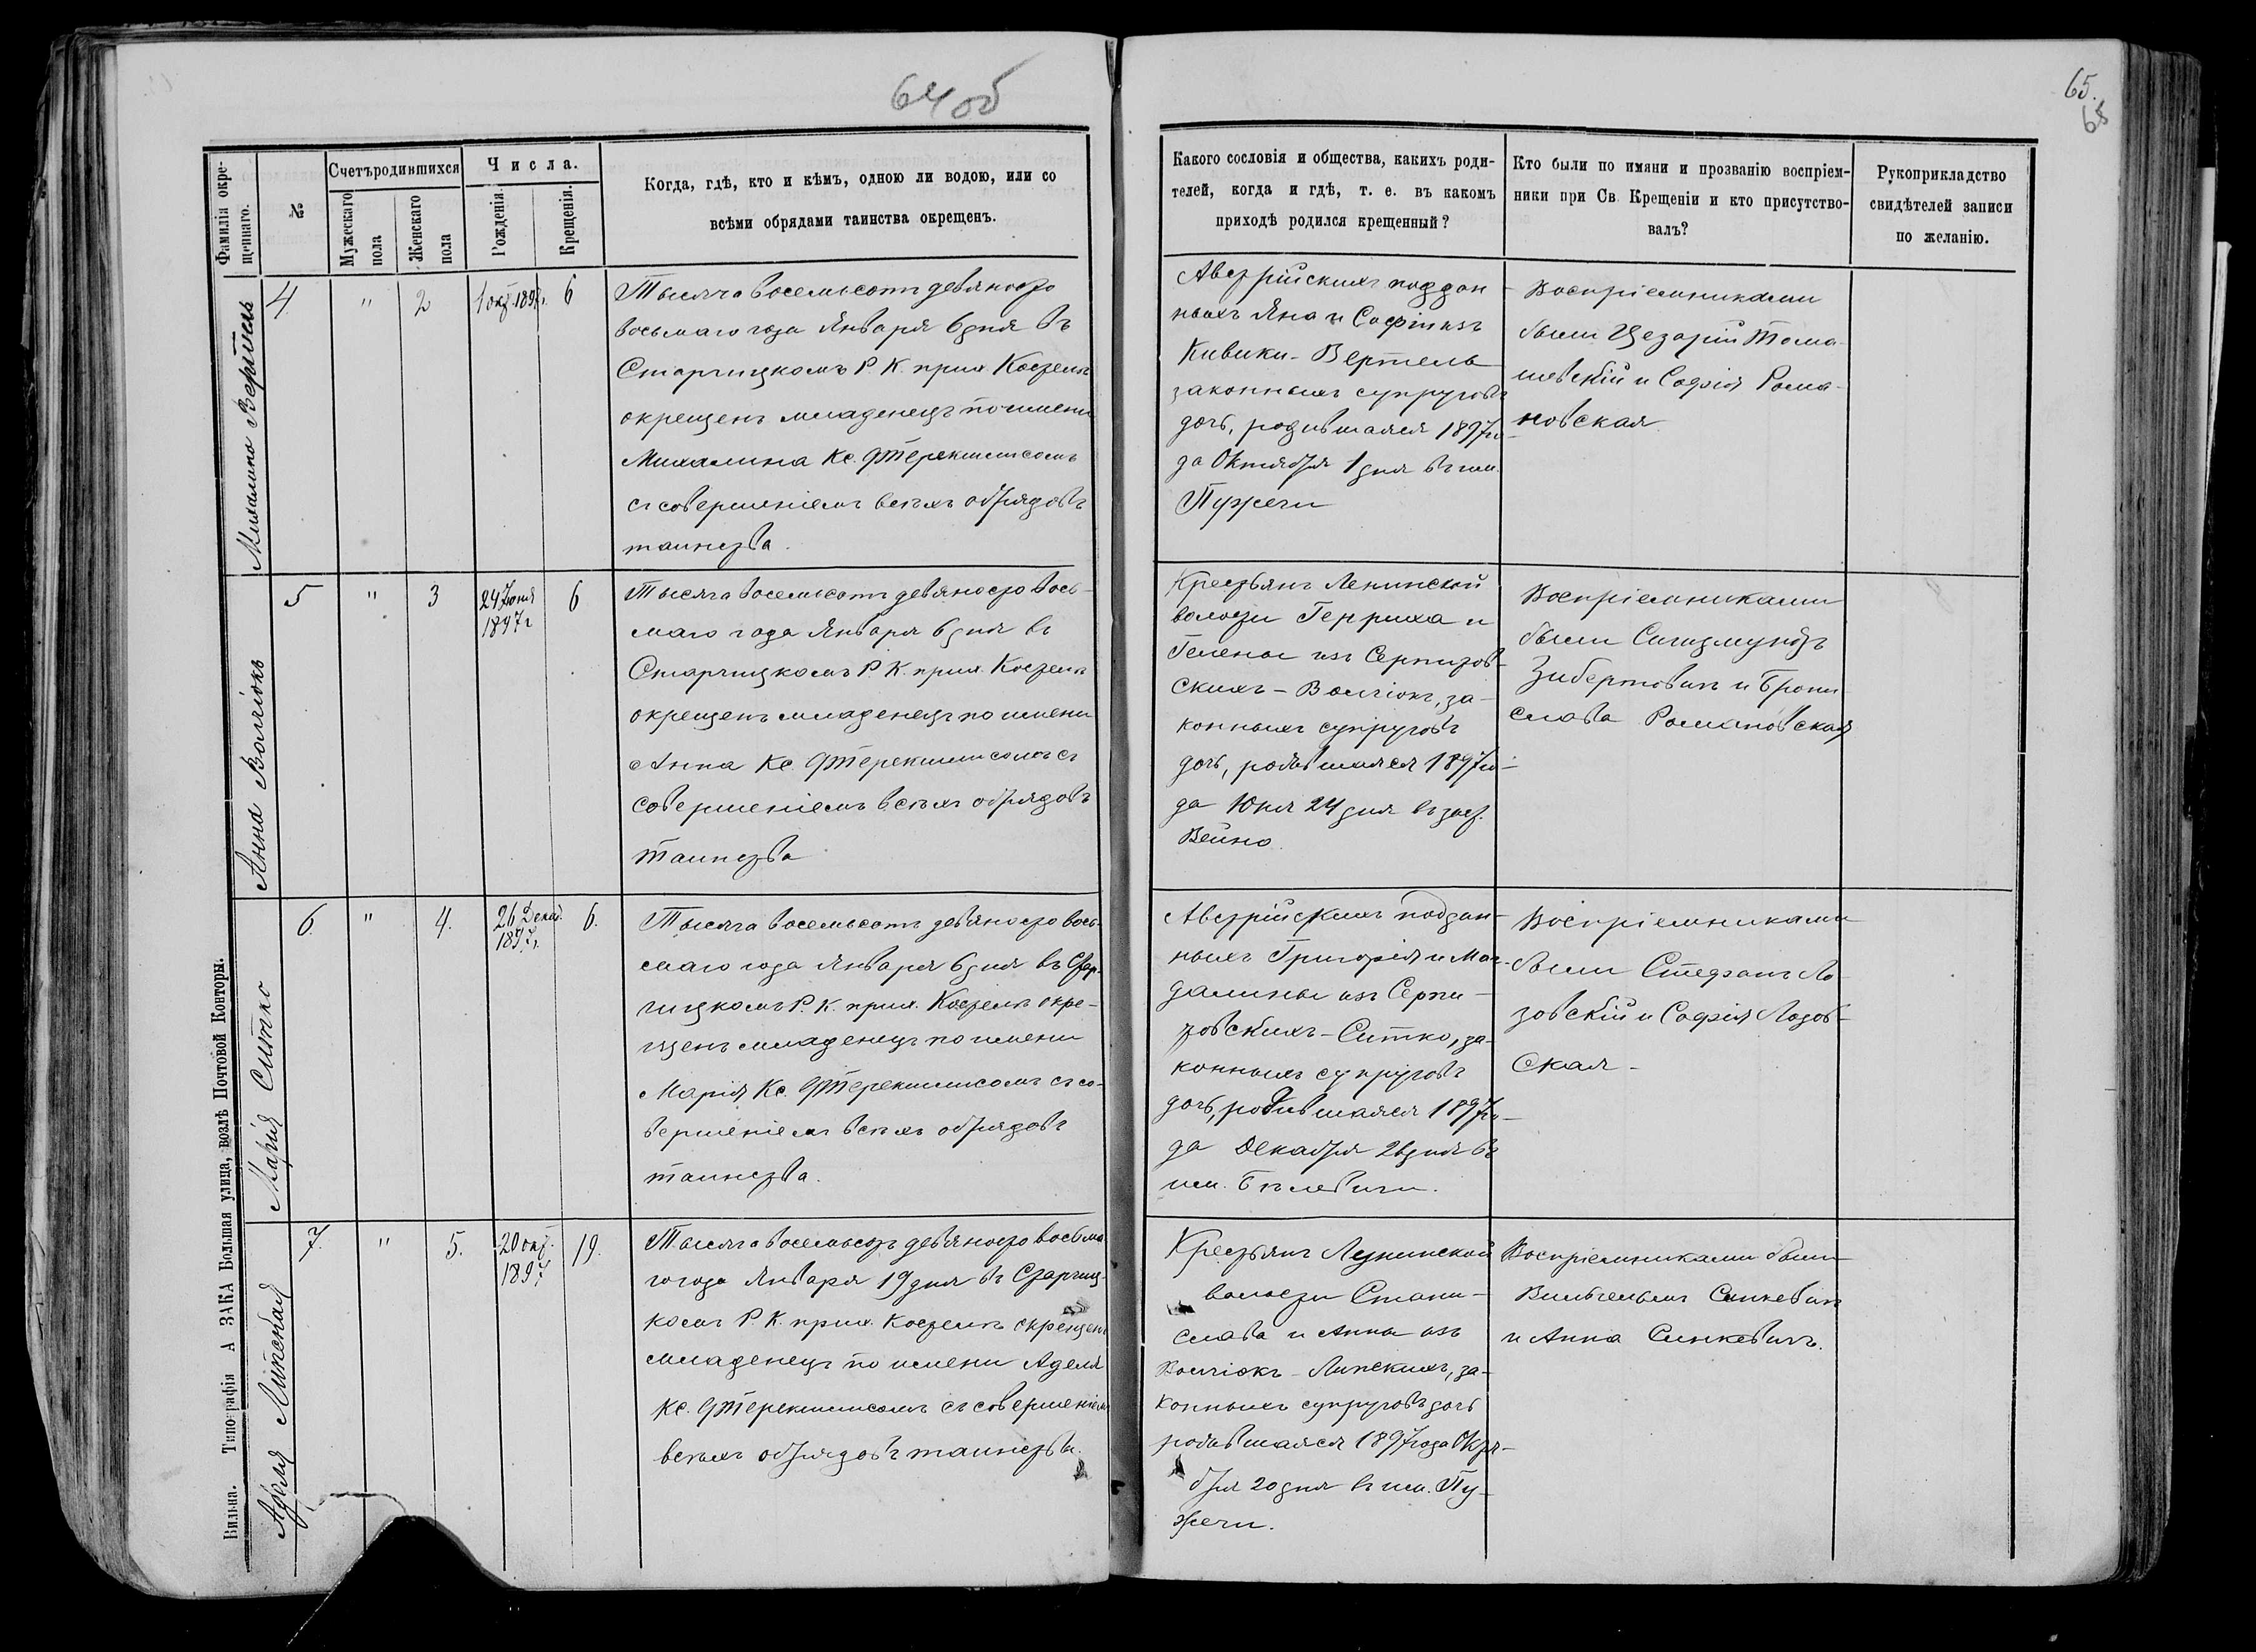 64 об
65.
65
Фамилія окрещеннаго.
№
Счетъ родившихся
Мужескаго пола
Женскаго пола
Числа.
Рожденія.
Крещенія.
Когда, гдѣ, кто и кѣмъ, одною ли водою, или со
всѣми обрядами таинства окрещенъ.
Какого сословія и общества, какихъ роди-
телей, когда и гдѣ, т. е. въ какомъ
приходѣ родился крещенный?
Кто были по имяни и прозванію воспріем-
ники при Св. Крещеніи и кто присутство-
валъ?
Рукоприкладство
свидѣтелей записи
по желанію.
Михалина Вертель
4
"
2
1 окт. 1897 г.
6
Тысяча восемьсотъ девяносто
восьмаго года Января 6 дня въ
Старчицкомъ Р. К. прих. Костелѣ
окрещенъ младенецъ по имени
Михалина Кс.
съ совершеніемъ всѣхъ обрядовъ
таинства.
Австрійскихъ поддан-
ныхъ Яна и Софіи изъ
Кивики - Вертель
законныхъ супруговъ
дочь, родившаяся 1897 го-
да Октября 1 дня въ им.
Пузичи
Воспріемниками
были Цезарій Тома-
шевскій и Софія Рома-
новская.
Анна Волчіокъ
5
"
3
24 Іюня
1897 г
6
Тысяча восемьсотъ девяносто вось-
маго года Января 6 дня въ
Старчицкомъ Р. К. прих. Костелѣ
окрещенъ младенецъ по имени
Анна Кс. съ
совершеніемъ всѣхъ обрядовъ
таинства
Крестьянъ Ленинской
волости Генриха и
Гелены изъ
скихъ - Волчіокъ, за-
конныхъ супруговъ
дочь, родившаяся 1897 го-
да Юня 24 дня въ заст.
Вейно.
Воспріемниками
были Сигизмундъ
Зибертовичъ и Брони-
слава Романовская
Марія Ситко
6.
"
4.
26 Декаб.
1897 г.
6.
Тысяча восемьсотъ девяносто вось-
маго года Января 6 дня въ Стар-
чицкомъ Р. К. прих. Костелѣ окре-
щенъ младенецъ по имени
Марія Кс. съ со-
вершеніемъ всѣхъ обрядовъ
таинства.
Австрійскихъ поддан-
ныхъ Григорія и Маг-
далины изъ
- Ситко, за-
конныхъ супруговъ
дочь, родившаяся 1897 го-
да Декабря 26 дня въ
им. Бѣлевичи.
Воспріемниками
были Стефанъ Ло-
зовскій и Софія Лозов-
ская -
Аделя Липская
7.
"
5.
20 окт.
1897
19.
Тысяча восемьсотъ девяносто восьма-
го года Января 19 дня въ Старчиц-
комъ Р. К. прих. Костелѣ окрещенъ
младенецъ по имени Аделя
Кс. съ совершеніемъ
всѣхъ обрядовъ таинства.
Крестьянъ Лунинской
волости Стани-
слава и Анны изъ
Волчіокъ - Липскихъ, за-
конныхъ супруговъ дочь
родившаяся 1897 года Октя-
бря 20 дня въ им. Пу-
зичи.
Воспріемниками были
Вильгельмъ Синкевичъ
и Анна Синкевичъ.
Вильна. Типографія А ЗАКА Большая улица, возлѣ Почтовой Конторы.